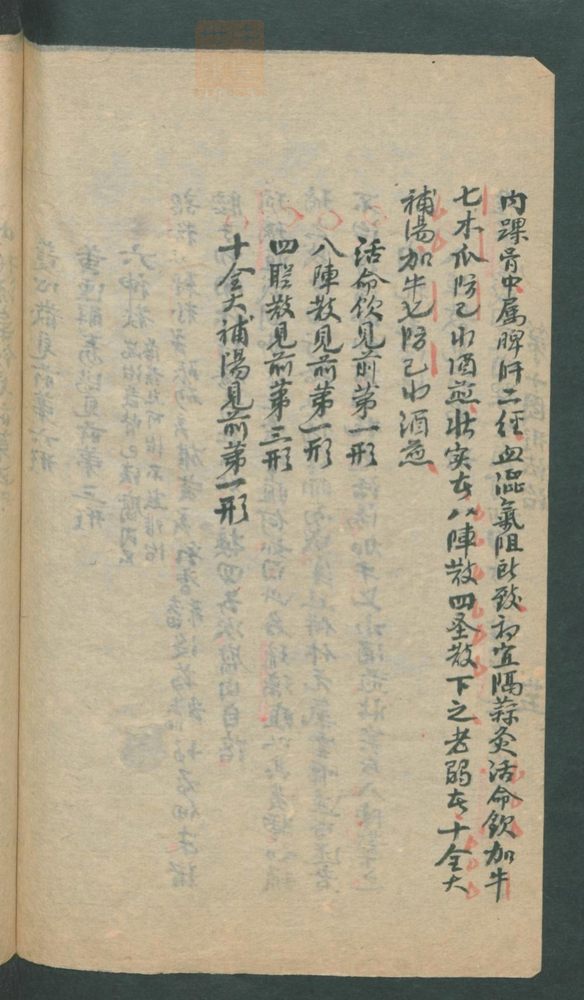 內踝骨中属脾肝二經血澀氣阻所致初宜隔蒜灸活命飲加牛
七木瓜防己水酒煎壮实者八陣散四圣散下之老弱者十全大
補湯加牛七防己水酒煎
活命飲見前第一形
八陣散見前第一形
四聖散見前第三形
十全大補湯見前第一形